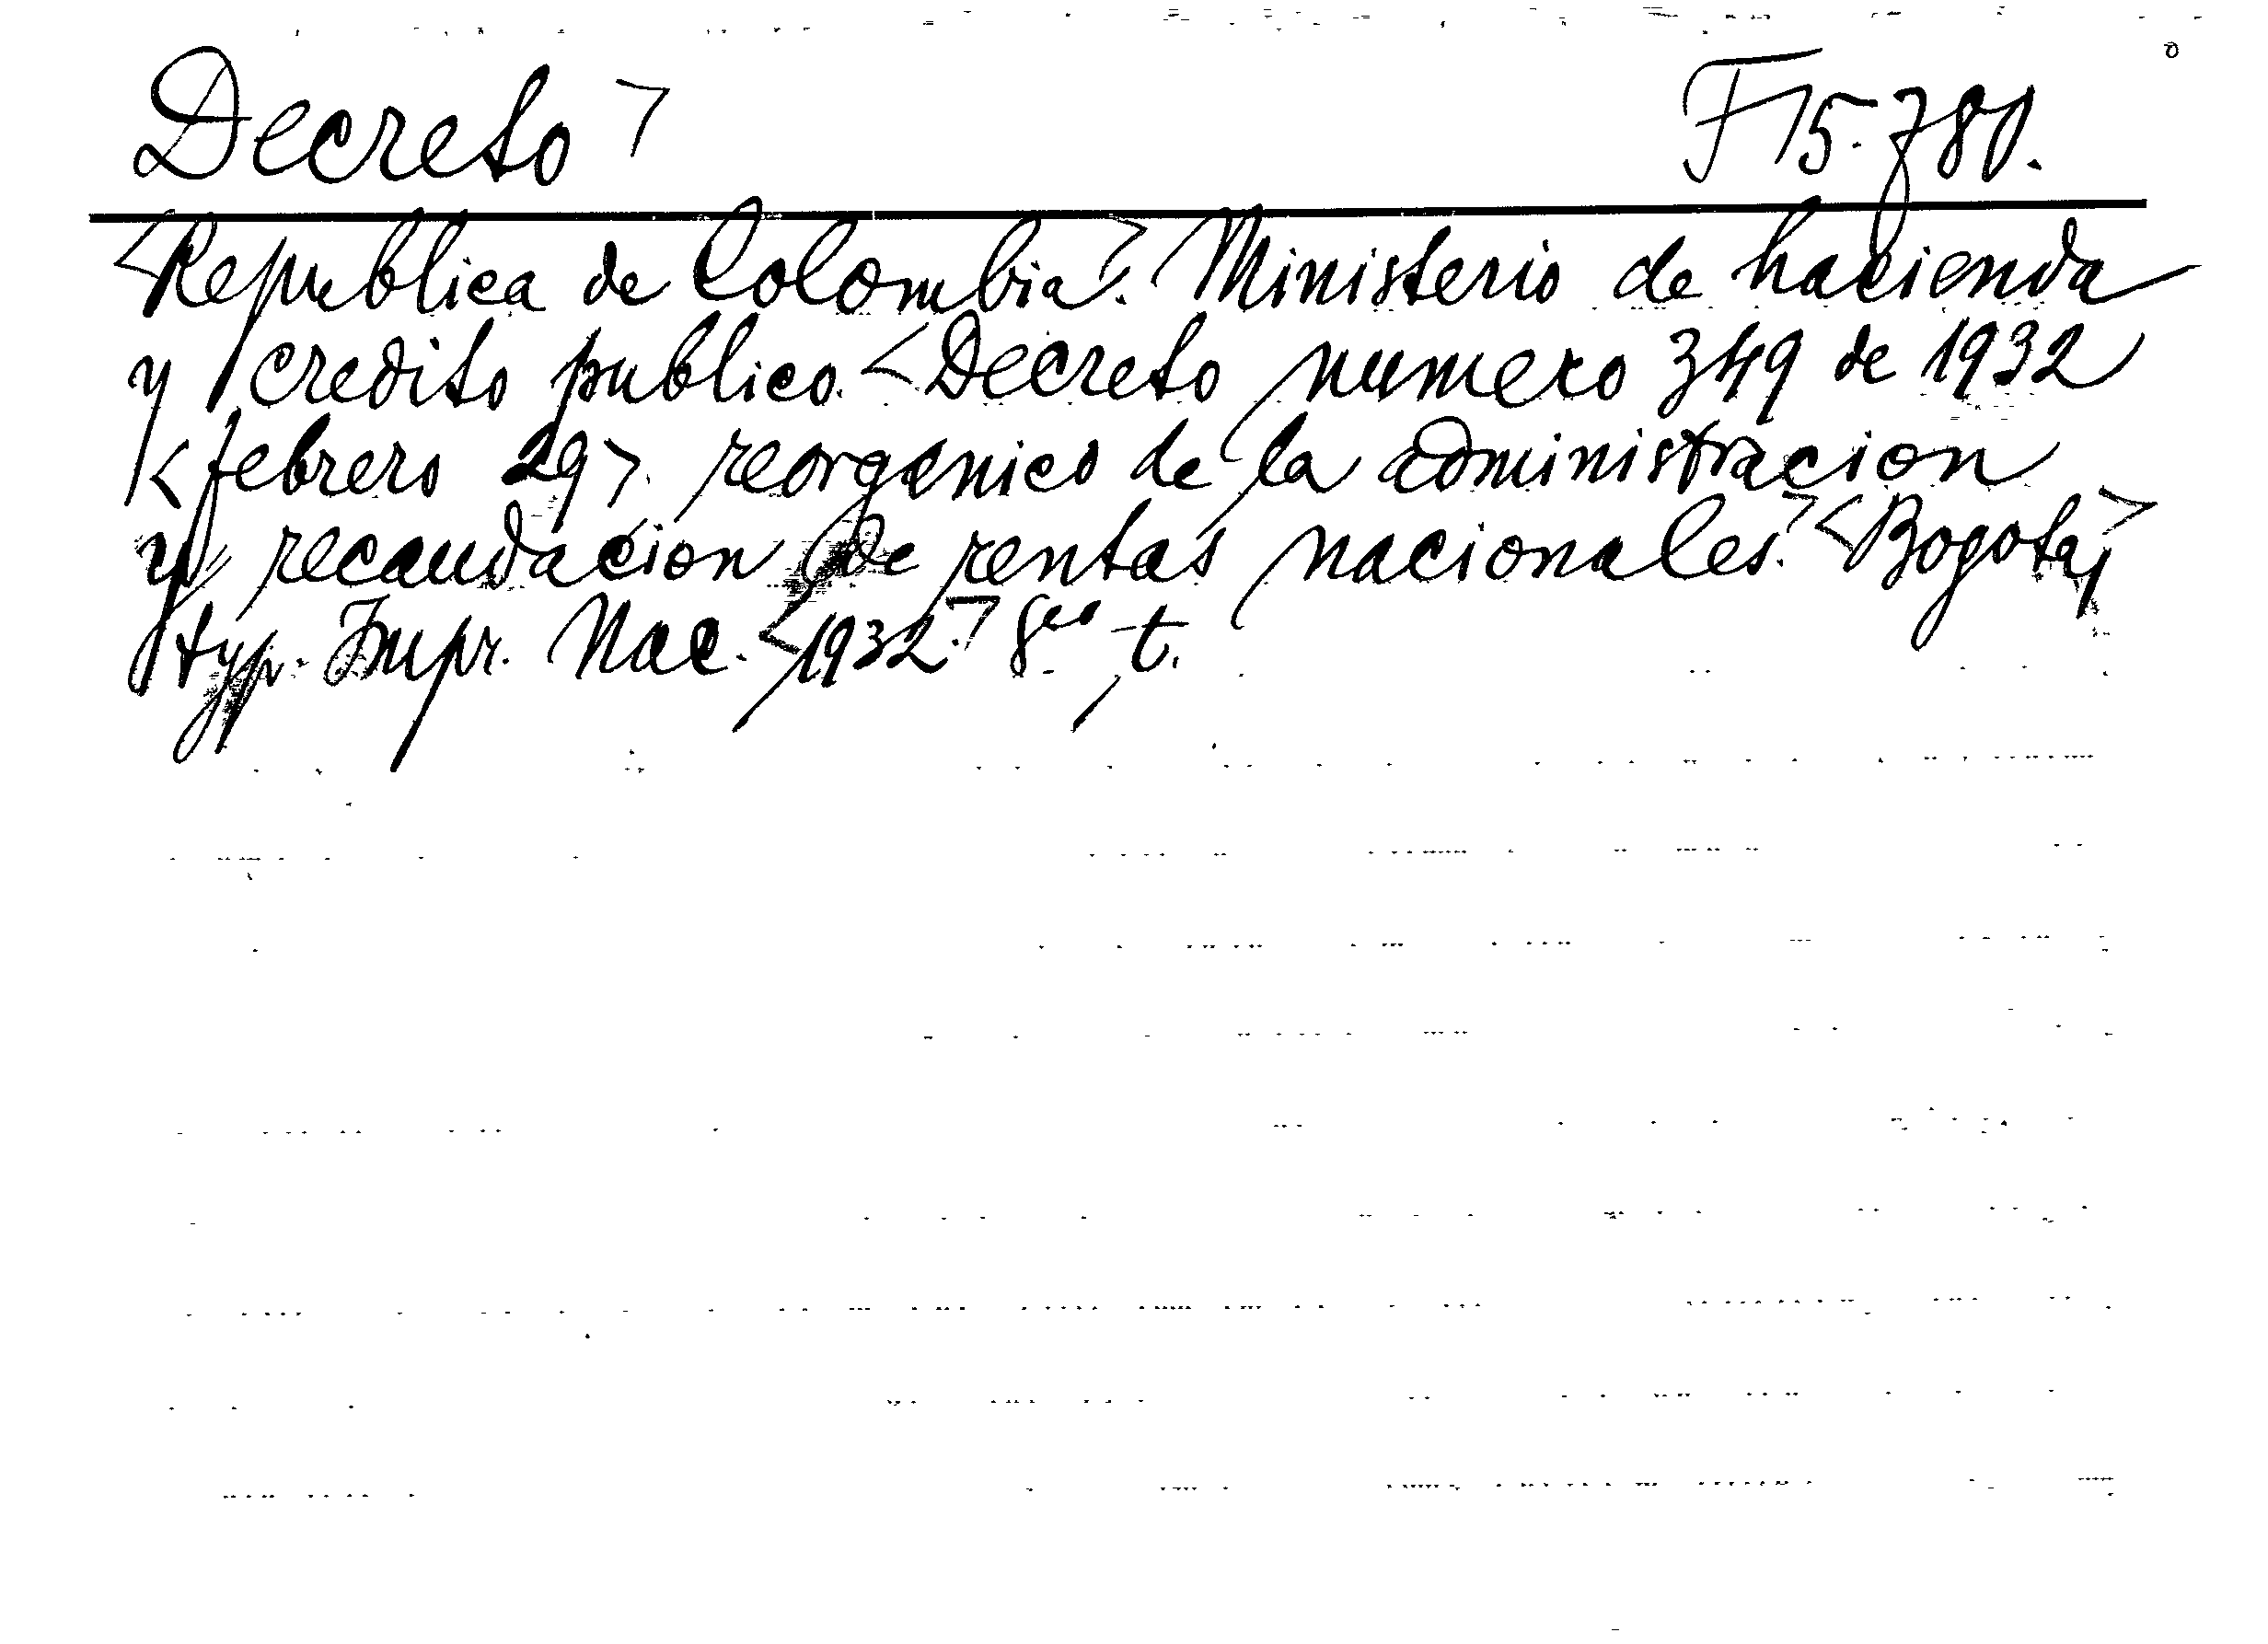 Decreto> F 15.780.
<Republica de Colombia>. Ministerio de hacienda
y credito publico. <Decreto numero 349 de 1932
<febrero 29>. reorganico de la administracion
y recaudacion de rentas nacionales.> <Bogota,>
typ. Impr. Nac. <1932.> 8º t.